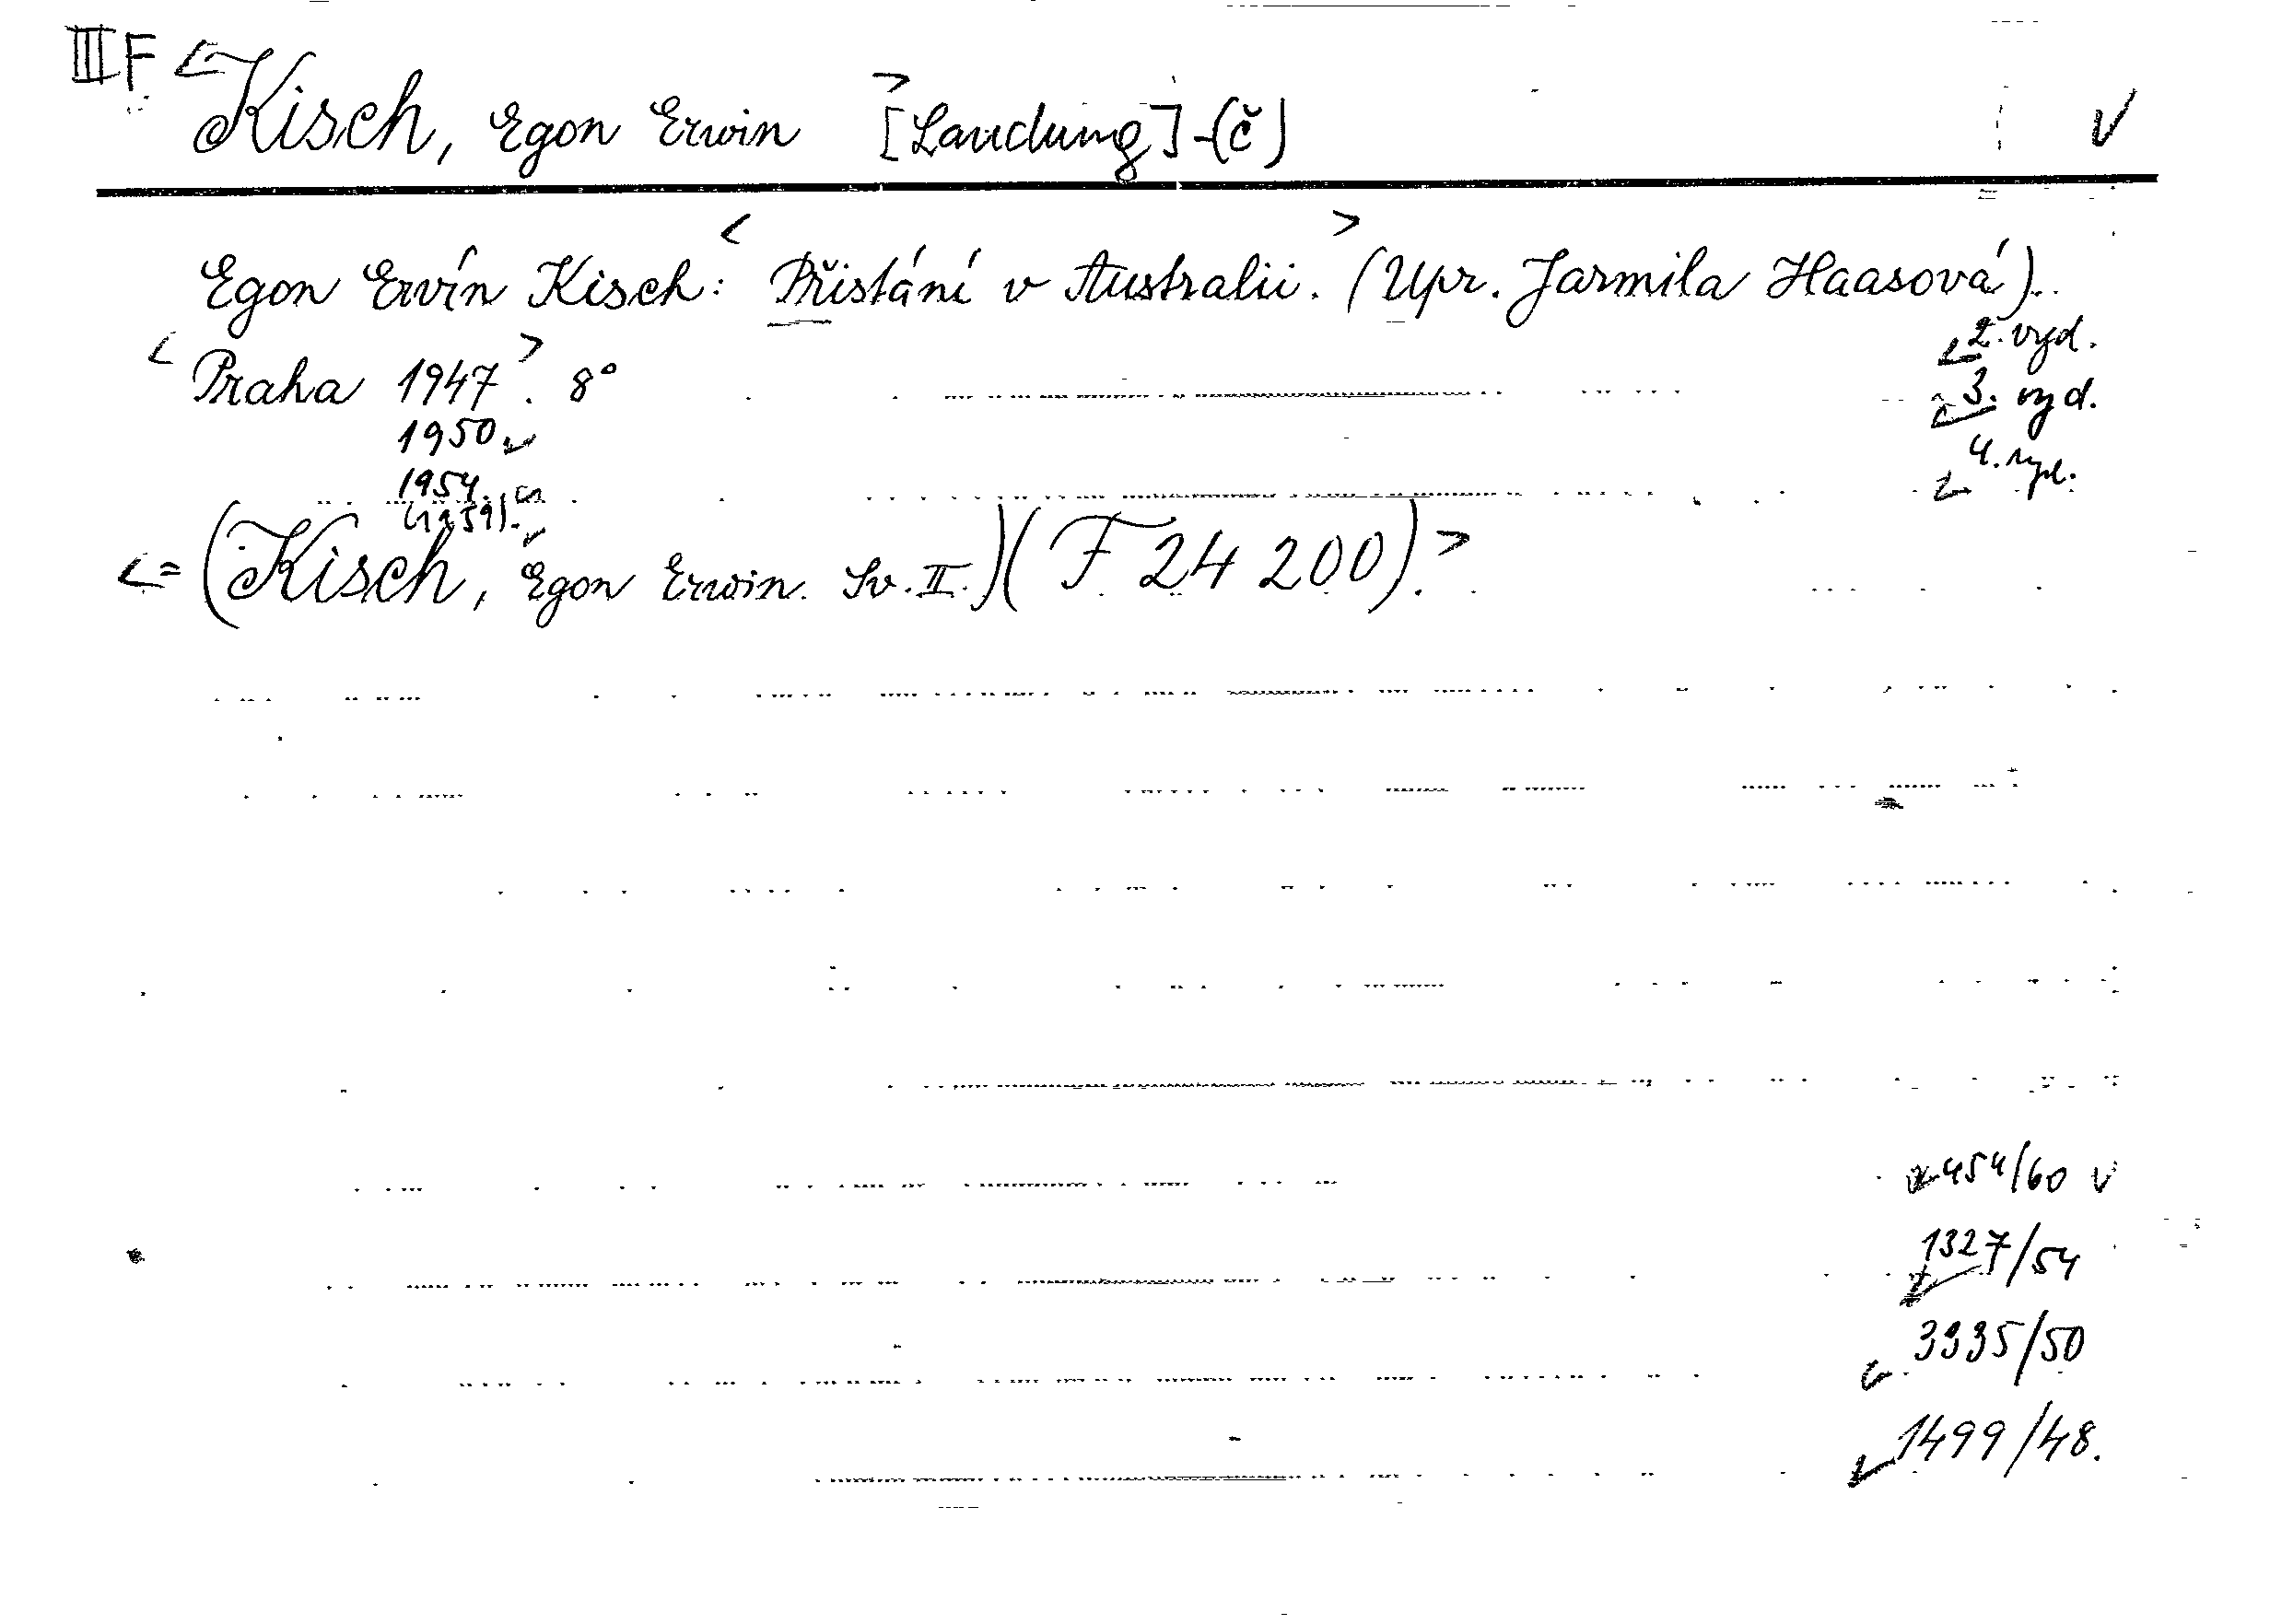 III F < Kisch, Egon Erwin > [Landung] - (č) ✓
Egon Ervín Kisch: < Přistání v Australii. > (Upr. Jarmila Haasová).
2. vyd.
< Praha 1947 > . 8°
3. vyd.
1950
4. vyd.
1954.
(1959).
< = (Kisch, Egon Erwin. Sv. II.) (F 24 200). >
454/60 ✓
1327/54
3335/50
1499/48.